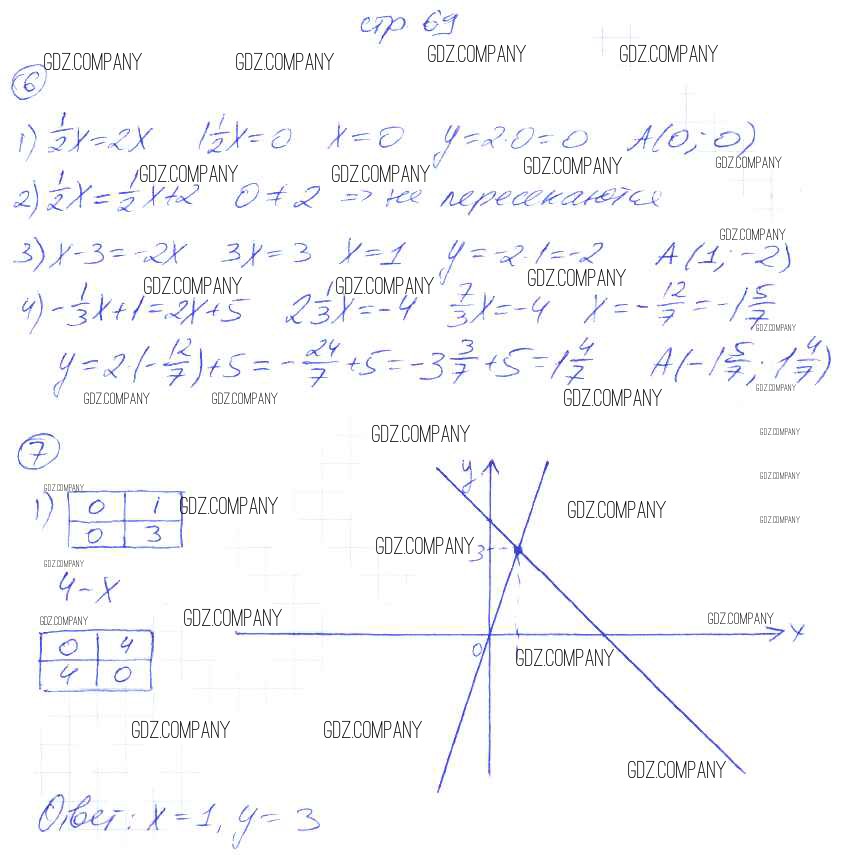 стр 69
GDZ.COMPANY GDZ.COMPANY GDZ.COMPANY GDZ.COMPANY
6
1) 1/2x=2x 1 1/2x=0 x=0 y=2·0=0 A(0; 0)
GDZ.COMPANY GDZ.COMPANY GDZ.COMPANY GDZ.COMPANY
2) 1/2x=1/2x+2 0≠2 => не пересекаются
GDZ.COMPANY
3) x-3=-2x 3x=3 x=1 y=-2·1=-2 A(1; -2)
GDZ.COMPANY GDZ.COMPANY GDZ.COMPANY
4) -1/3x+1=2x+5 2 1/3x=-4 7/3x=-4 x=-12/7=-1 5/7
GDZ.COMPANY
y=2·(-12/7)+5=-24/7+5=-3 3/7+5=1 4/7 A(-1 5/7; 1 4/7)
GDZ.COMPANY GDZ.COMPANY GDZ.COMPANY GDZ.COMPANY
GDZ.COMPANY GDZ.COMPANY
7
y
GDZ.COMPANY GDZ.COMPANY
1) 0 1 GDZ.COMPANY GDZ.COMPANY
0 3 GDZ.COMPANY 3 GDZ.COMPANY
GDZ.COMPANY
4-x
GDZ.COMPANY GDZ.COMPANY GDZ.COMPANY
0 4 x
4 0 0 GDZ.COMPANY
GDZ.COMPANY GDZ.COMPANY
GDZ.COMPANY
Ответ: x=1, y=3